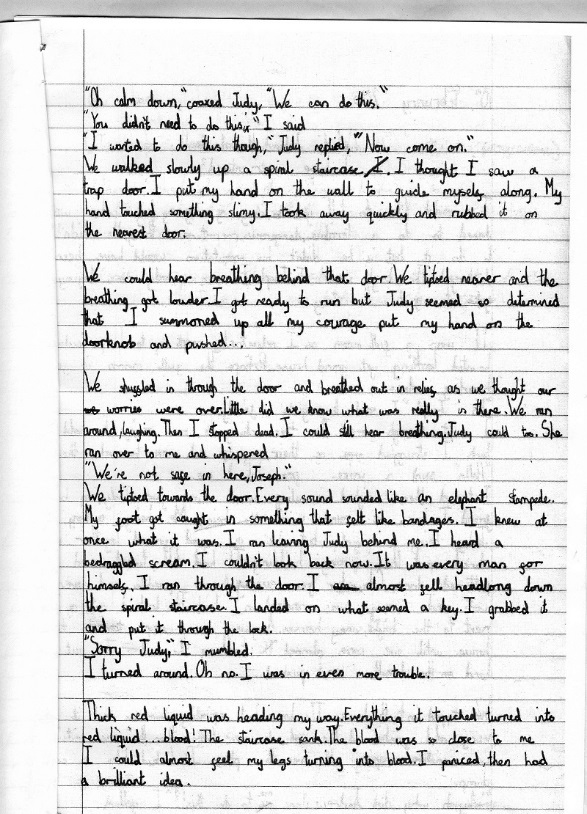 "Oh calm down," coaxed Judy, "We can do this."
"You didn't need to do this," I said
"I wanted to do this though," Judy replied, "Now come on."
We walked slowly up a spiral staircase. I thought I saw a
trap door. I put my hand on the wall to guide myself along. My
hand touched something slimy. I took away quickly and rubbed it on
the nearest door.
We could hear breathing behind that door. We tiptoed nearer and the
breathing got louder. I got ready to run but Judy seemed so determined
that I summoned up all my courage put my hand on the
doorknob and pushed...
We shuggled in through the door and breathed out in relief as we thought our
worries were over. Little did we know what was really in there. We ran
around, laughing. Then I stopped dead. I could still hear breathing. Judy could too. She
ran over to me and whispered
"We're not safe in here, Joseph."
We tiptoed towards the door. Every sound sounded like an elephant stampede.
My foot got caught in something that felt like bandages. I knew at
once what it was. I ran leaving Judy behind me. I heard a
bedraggled scream. I couldn't look back now. It was every man for
himself. I ran through the door. I almost fell headlong down
the spiral staircase. I landed on what seemed a key. I grabbed it
and put it through the lock.
"Sorry Judy," I mumbled.
I turned around. Oh no. I was in even more trouble.
Thick red liquid was heading my way. Everything it touched turned into
red liquid...blood! The staircase sank. The blood was so close to me
I could almost feel my legs turning into blood. I paniced, then had
a brilliant idea.